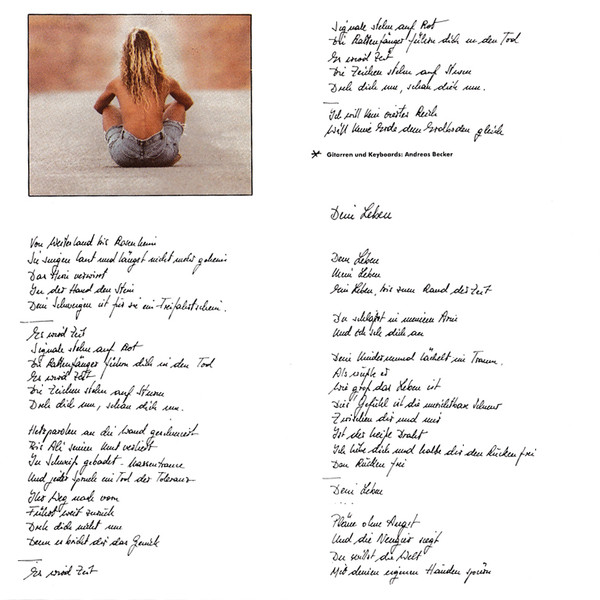 Von Westerland bis Rosenheim
Sie singen laut und längst nicht mehr geheim
Das Hirn verwirrt
In der Hand den Stein
Dein Schweigen ist für sie ein Freifahrtschein.
Es wird Zeit
Signale stehn auf Rot
Die Rattenfänger führen dich in den Tod
Es wird Zeit
Die Zeichen stehn auf Sturm
Dreh dich um, schau dich um.
Hetzparolen an die Wand geschmiert
Bis Ali seinen Mut verliert
In Schweiß gebadet - Massentrance
Und jeder Spruch ein Tod der Toleranz
Ihr Weg nach vorn
Führt weit zurück
Dreh dich nicht um
Denn es bricht dir das Genick
Es wird Zeit
Signale stehn auf Rot
Die Rattenfänger führen dich in den Tod
Es wird Zeit
Die Zeichen stehn auf Sturm
Dreh dich um, schau dich um.
Ich will kein drittes Reich
Will keine Erde dem Erdboden gleich
Gitarren und Keyboards: Andreas Becker
Dein Leben
Dein Leben
Mein Leben
Ein Leben, bis zum Rand der Zeit
Du schläfst in meinem Arm
Und ich seh dich an
Dein Kindermund lächelt im Traum
Als wüßte er
Wie groß das Leben ist
Dies Gefühl ist die unsichtbare Schnur
Zwischen dir und mir
Ist der heiße Draht
Ich liebe dich und halte dir den Rücken frei
Den Rücken frei
Dein Leben
...
Pläne ohne Angst
Und die Neugier siegt
Du willst die Welt
Mit deinen eigenen Händen spüren